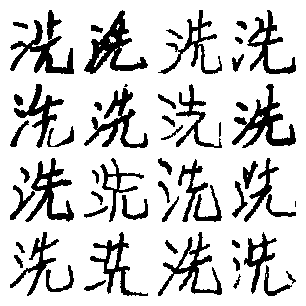 洗洗洗洗
洗洗洗洗
洗洗洗洗
洗洗洗洗